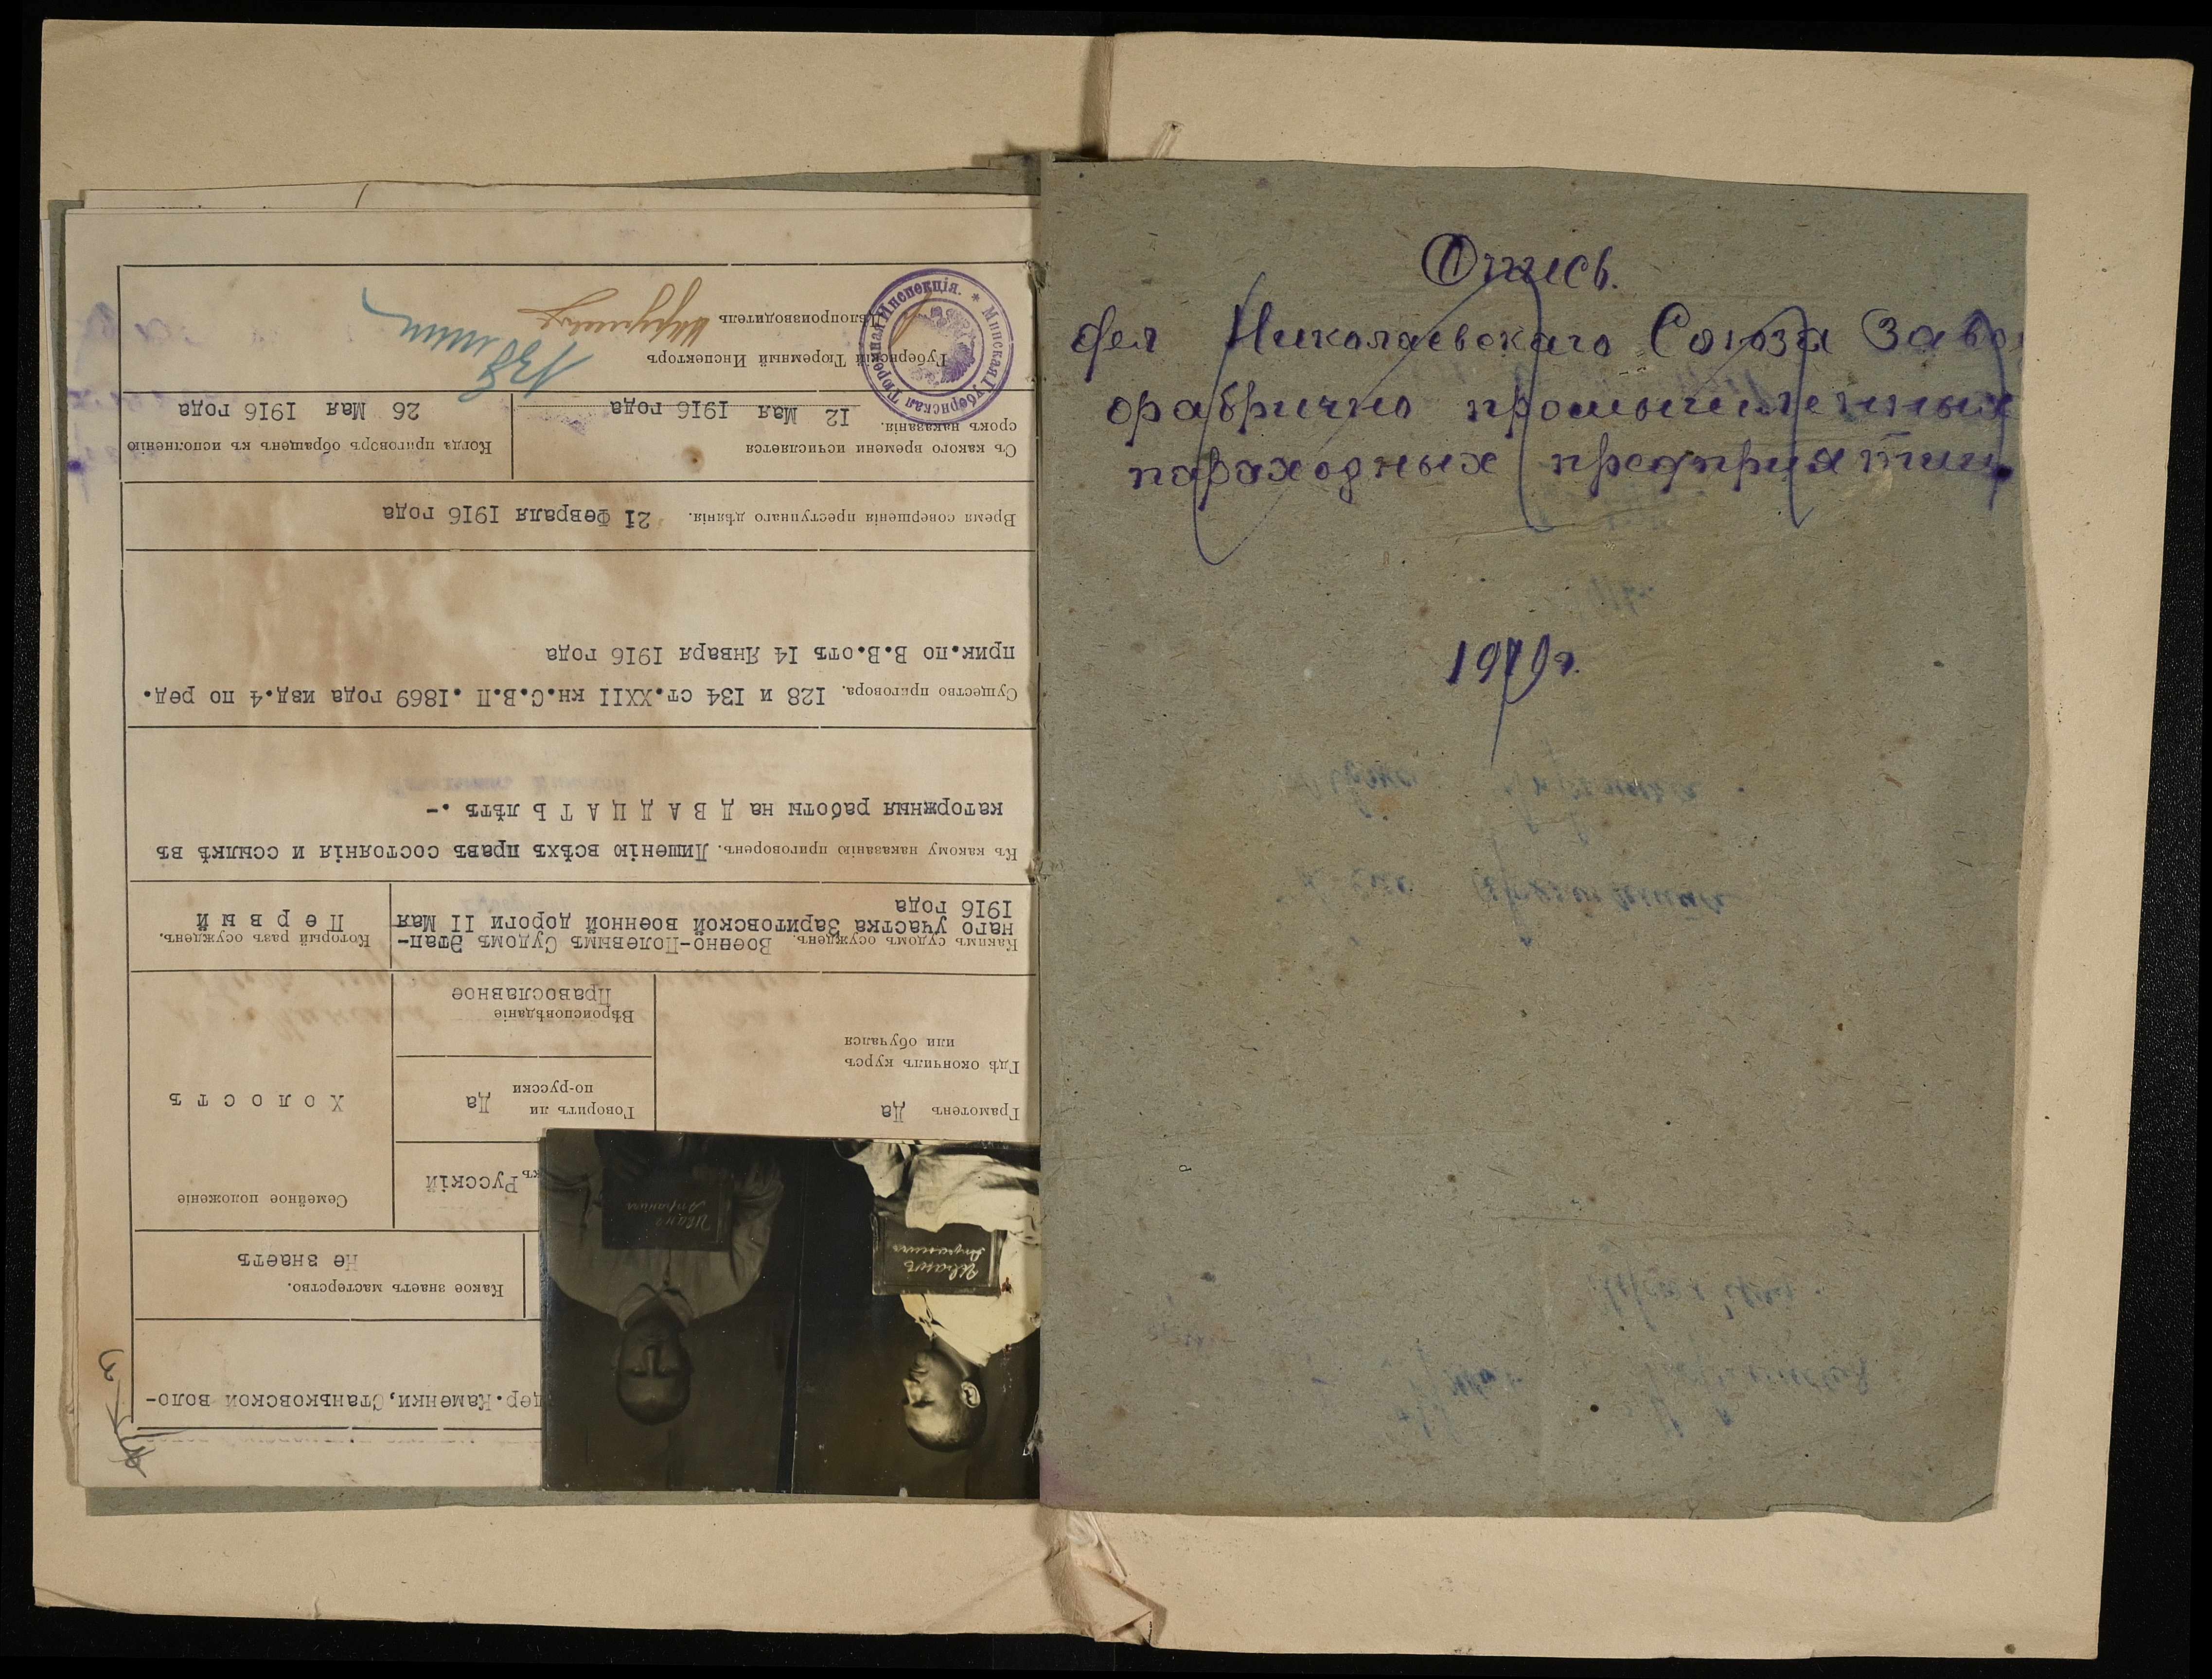 дер.Каменки,Станьковской воло-
Какое знаетъ мастерство.
Не знаетъ
Русскій
Семейное положеніе
Холостъ
Грамотенъ Да
Говорить ли по-русски Да
Гдѣ окончилъ курсъ
или обучался
Вѣроисповѣданіе
Православное
Какимъ судомъ осужденъ. Военно-Полевымъ Судомъ Этап-
наго участка Заритовской военной дороги II Мая
1916 года
Который разъ осужденъ.
Первый
Къ какому наказанію приговоренъ. Лишенію всѣхъ правъ состоянія и ссылкѣ въ
каторжныя работы на ДВАДЦАТЬ лѣтъ.-
Существо приговора. 128 и 134 ст.XXII кн.С.В.П.1869 года изд.4 по ред.
прик.по В.В.отъ I4 Января 1916 года
Время совершенія преступнаго дѣянія. 2I Февраля 1916 года
Съ какого времени исчисляется
срокъ наказанія. I2 Мая 1916 года
Когда приговоръ обращенъ къ исполненію
26 Мая 1916 года
Губернскій Тюремный Инспекторъ
Дѣлопроизводитель
Минская Губернская Тюремная Инспекція.
Иванъ
Опись.
дел Николаевскаго Союза Заво
фабрично промышленных
параходных предприятии